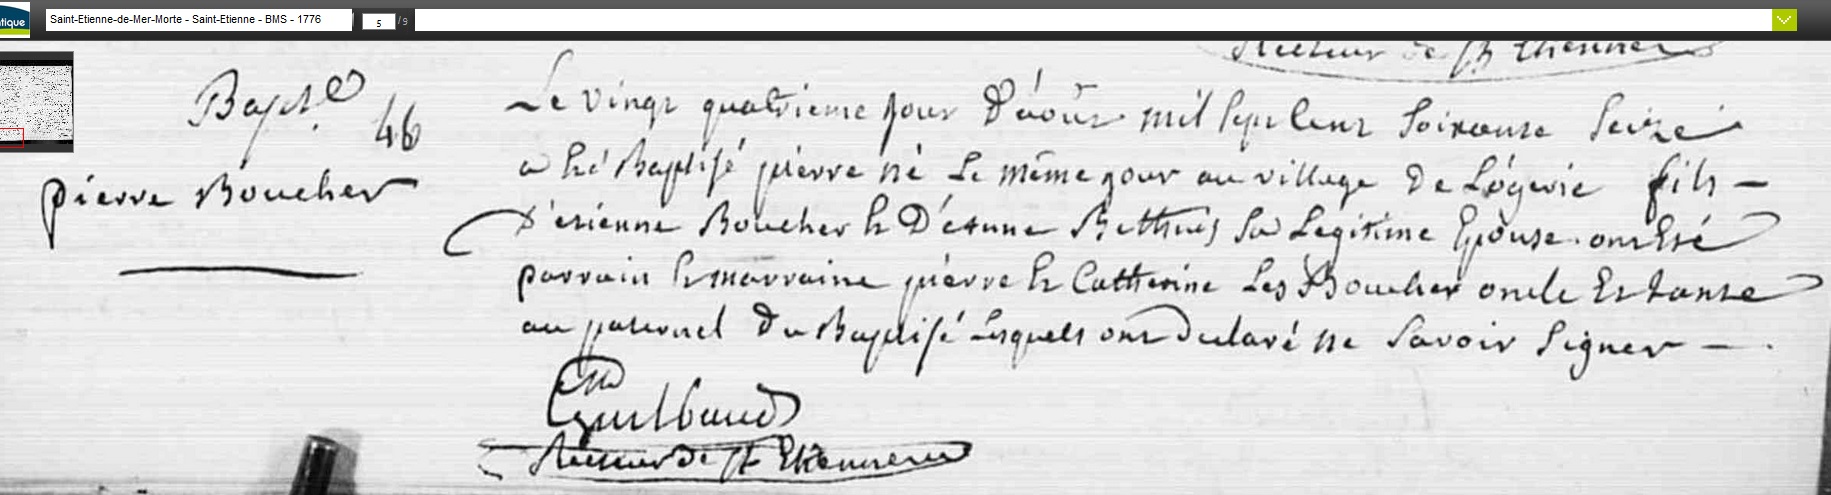 ntique
Saint-Etienne-de-Mer-Morte - Saint-Etienne - BMS - 1776
5 / 9
Recteur de St Etienne
Bapt.e 46
pierre Boucher
Le vingt quatrieme jour D'août mil sept cent soixante seize
a été Baptisé pierre né le même jour au village de Logerie fils -
D'etienne Boucher et D'etenne sa Légitime Epouse. ont Eté
parrain et marraine pierre et Catherine Les Boucher oncle Et tante
au paternel du Baptisé Lesquels ont declaré ne Savoir Signer -
Guilbaud
Recteur de St Etienne